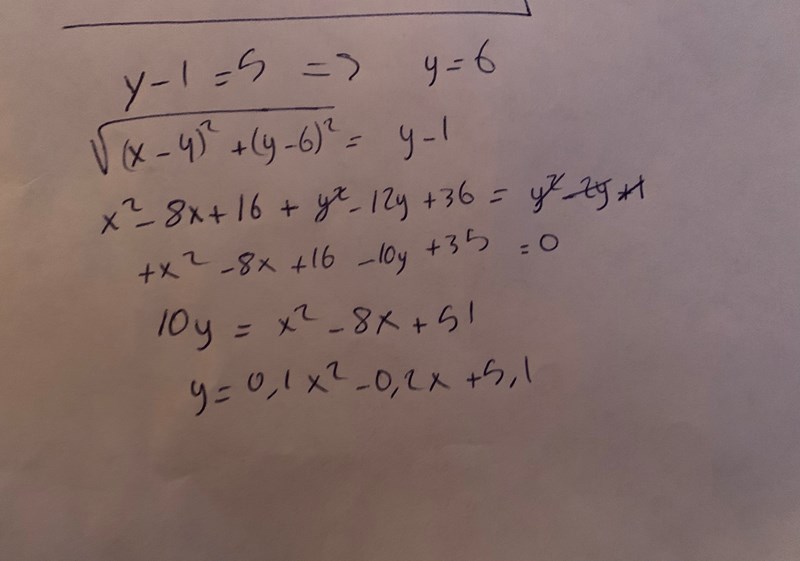 y-1=5 => y=6
√((x-4)²+(y-6)²) = y-1
x²-8x+16+y²-12y+36 = y²-2y+1
+x²-8x+16-10y+35=0
10y = x²-8x+51
y=0,1x²-0,2x+5,1